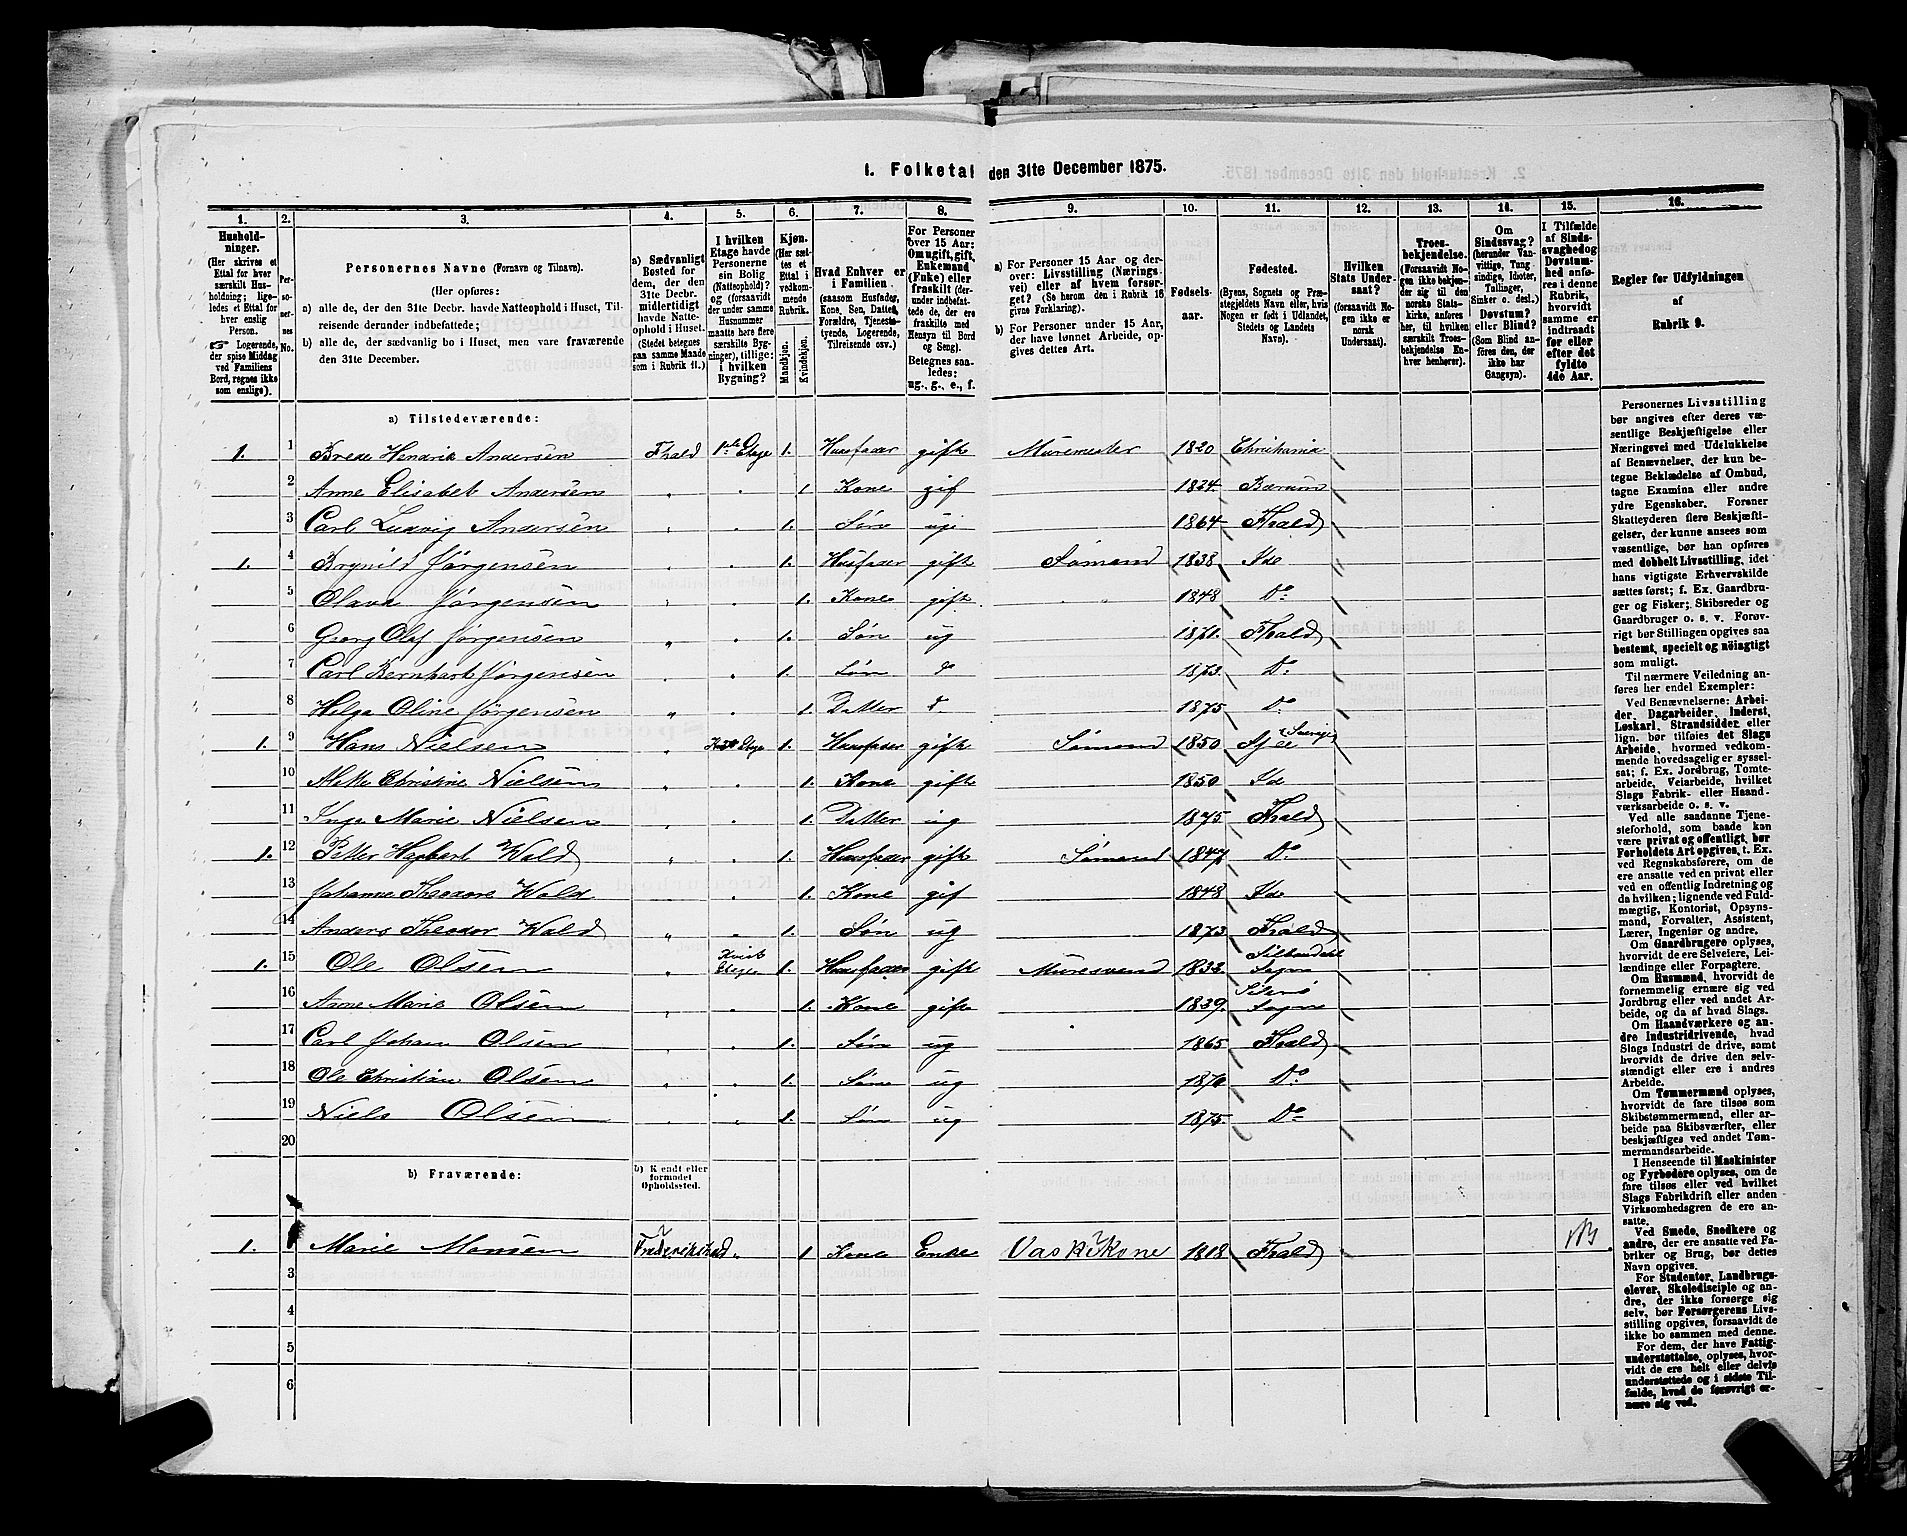 1. Folketal den 31te December 1875.
1. 2. 3. 4. 5. 6. 7. 8. 9. 10. 11. 12. 13. 14. 15. 16.
Hushold-
ninger.
(Her skrives et
Ettal for hver
særskilt Hus-
holdning; lige-
ledes et Ettal for
hver enslig
Person.
☞ Logerende,
der spise Middag
ved Familiens
Bord, regnes ikke
som enslige).
Per-
so-
ner-
nes
No.
Personernes Navne (Fornavn og Tilnavn).
(Her opføres:
a) alle de, der den 31te Decbr. havde Natteophold i Huset, Til-
reisende derunder indbefattede;
b) alle de, der sædvanlig bo i Huset, men vare fraværende
den 31te December.
a) Sædvanligt
Bosted for
dem, der den
31te Decbr.
midlertidigt
havde Natte-
ophold i Huset.
(Stedet betegnes
paa samme Maade
som i Rubrik 11.)
I hvilken
Etage havde
Personerne
sin Bolig
(Natteophold)?
og (forsaavidt
der under samme
Husnummer
maatte høre flere
særskilte Byg-
ninger), tillige:
i hvilken
Bygning?
Kjøn.
(Her sæt-
tes et
Ettal i
vedkom-
mende
Rubrik.
Mandkjøn.
Kvindekjøn.
Hvad Enhver er
i Familien
(saasom Husfader,
Kone, Søn, Datter,
Forældre, Tjeneste-
tyende, Logerende,
Tilreisende osv.)
For Personer
over 15 Aar:
Om ugift, gift,
Enkemand
(Enke) eller
fraskilt (der-
under indbefat-
tede de, der ere
fraskilte med
Hensyn til Bord
og Seng).
Betegnes saa-
ledes:
ug., g., e., f.
a) For Personer 15 Aar og der-
over: Livsstilling (Nærings-
vei) eller af hvem forsør-
get? (Se herom den i Rubrik 16
givne Forklaring).
b) For Personer under 15 Aar,
der have lønnet Arbeide, op-
gives dettes Art.
Fødsels-
aar.
Fødested.
(Byens, Sognets og Præ-
stegjeldets Navn eller, hvis
Nogen er født i Udlandet,
Stedets og Landets
Navn).
Hvilken
Stats Under-
saat?
(forsaavidt No-
gen ikke er
norsk
Undersaat).
Troes-
bekjendelse.
(Forsaavidt No-
gen ikke bekjen-
der sig til den
norske Stats-
kirke, anføres
her, til hvilken
særskilt Troes-
bekjendelse En-
hver henhører).
Om
Sindssvag?
(herunder Van-
vittige, Tung
sindige, Idioter,
Tullinger,
Sinker o. desl.)
Døvstum?
eller Blind?
(Som Blind an-
føres den, der
ikke har
Gangsyn).
I Tilfælde
af Sinds-
svaghed og
Døvstum-
hed anfø-
res i denne
Rubrik,
hvorvidt
samme er
indtraadt
før eller
efter det
fyldte
4de Aar.
Regler for Udfyldningen
af
Rubrik 9.
a) Tilstedeværende:
1. 1 Brede Hendrik Andersen Fhald 1ste Etage 1. Huusfader gift Muremester 1820 Christiania
2 Anne Elisabet Andersen „ „ 1 Kone gif 1824 Bærum
3 Carl Ludvig Andersen „ „ 1. Søn ug 1864 Fhald
1. 4 Brynild Jørgensen „ „ 1. Husfader gift Sømand 1838 Ide
5 Olava Jørgensen „ „ 1. Kone gift „ 1848 Do
6 Georg Olaf Jørgensen „ „ 1. Søn ug 1871. Fhald
7 Carl Bernhart Jørgensen „ „ 1. Søn d 1873. Do
8 Helga Oline Jørgensen „ „ 1. Datter d 1875 Do
1. 9 Hans Nielsen „ Etage 1. Huusfader gift Sømand 1850 Sverig
10 Mette Christine Nielsen „ „ 1. Kone gift 1850 Ide
11 Inga Marie Nielsen „ „ 1. Datter ug 1875 Fhald
1. 12 Petter Hagbart Wold „ „ 1. Huusfader gift Sømand 1847 Do
13 Johanne Theodore Wold „ „ 1. Kone gif 1848 Ide
14 Anders Theodor Wold „ „ 1. Søn ug 1873 Fhald
1. 15 Ole Olsen „ Kvist Etage 1. Huusfader gift Muresvend 1832. Sogn
16 Anne Marie Olsen „ „ 1. Kone gift 1839. Sogn
17 Carl Johan Olsen „ „ 1. Søn ug 1865 Fhald
18 Ole Christian Olsen „ „ 1. Søn ug 1870 Do
19 Niels Olsen „ „ 1. Søn ug 1875. Do
20
b) Fraværende:
b) Kjendt eller
formodet
Opholdssted.
1. Marie Monsen Frederikstad „ 1 Kone Enke Vaskekone 1818 Fhald
3
4
5
6
Personernes Livsstilling
bør angives efter deres væ-
sentlige Beskjæftigelse eller
Næringsvei med Udelukkelse
af Benævnelser, der kun be-
tegne Beklædelse af Ombud,
tagne Examina eller andre
ydre Egenskaber. Forener
Skatteyderen flere Beskjæfti-
gelser, der kunne ansees som
væsentlige, bør han opføres
med dobbelt Livsstilling, idet
hans vigtigste Erhvervskilde
sættes først; f. Ex. Gaardbru-
ger og Fisker; Skibsreder og
Gaardbruger o. s. v. Forøv-
rigt bør Stillingen opgives saa
bestemt, specielt og nöiagtigt
som muligt.
Til nærmere Veiledning an-
føres her endel Exempler:
Ved Benævnelserne: Arbei-
der, Dagarbeider, Inderst,
Løskarl, Strandsidder eller
lign. bør tilføies det Slags
Arbeide, hvormed vedkom-
mende hovedsagelig er syssel-
sat; f. Ex. Jordbrug, Tomte-
arbeide, Veiarbeide, hvilket
Slags Fabrik- eller Haand-
værksarbeide o. s. v.
Ved alle saadanne Tjene-
steforhold, som baade kan
være privat og offentligt, bør
Forholdets Art opgives, t. Ex.
ved Regnskabsførere, om de
ere ansatte ved en privat eller
ved en offentlig Indretning og
da hvilken; lignende ved Fuld-
mægtig, Kontorist, Opsyns-
mand, Forvalter, Assistent,
Lærer, Ingeniør og andre.
Om Gaardbrugere oplyses,
hvorvidt de ere Selveiere, Lei-
lændinge eller Forpagtere.
Om Husmænd, hvorvidt de
fornemmelig ernære sig ved
Jordbrug eller ved andet Ar-
beide, og da af hvad Slags.
Om Haandværkere og an-
dre Industridrivende, hvad
Slags Industri de drive, samt
hvorvidt de drive den selv-
stændigt eller ere i andres
Arbeide.
Om Tømmermænd oplyses,
hvorvidt de fare tilsøs som
Skibstømmermænd, eller ar-
beide paa Skibsværfter, eller
beskjæftiges ved andet Tøm-
mermandsarbeide.
I Henseende til Maskinister
og Fyrbødere oplyses, om de
fare tilsøs eller ved hvilket
Slags Fabrikdrift eller anden
Virksomhedsgren de ere an-
satte.
Ved Smede, Snedkere og
andre, der ere ansatte ved Fa-
briker og Brug, bør dettes
Navn opgives.
For Studenter, Landbrugs-
elever, Skoledisciple og an-
dre, der ikke forsørge sig
selv, bør Forsørgerens Livs-
stilling opgives, forsaavidt de
ikke bo sammen med denne.
For dem, der have Fattig-
understøttelse, oplyses, hvor-
vidt de ere helt eller delvis
understøttede og i sidste Til-
fælde, hvad de forøvrigt er-
nære sig ved.